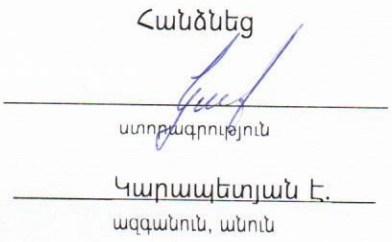 Հանձնեց
ստորագրություն
Կարապետյան Է.
ազգանուն, անուն